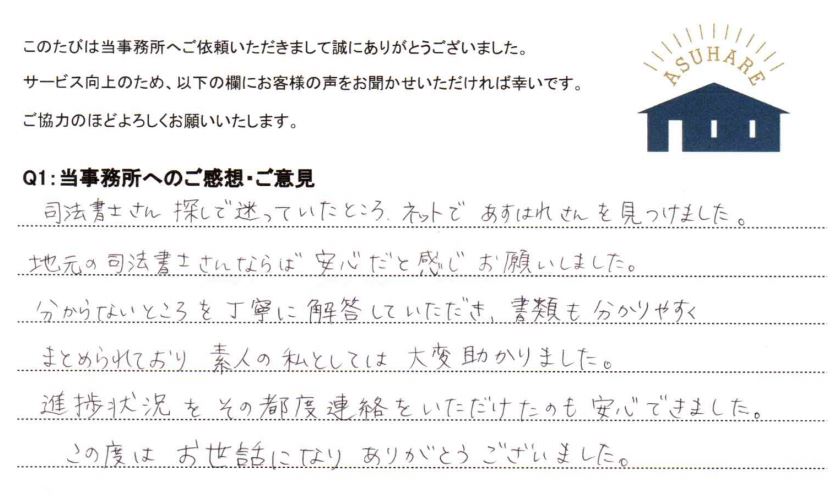 このたびは当事務所へご依頼いただきまして誠にありがとうございました。
サービス向上のため、以下の欄にお客様の声をお聞かせいただければ幸いです。
ご協力のほどよろしくお願いいたします。
ASUHARE
Q1:当事務所へのご感想・ご意見
司法書士さん 探しで迷っていたところ、ネットで あすはれさんを見つけました。
地元の司法書士さんならば 安心だと感じ お願いしました。
分からないところを丁寧に解答していただき、書類も分かりやすく
まとめられており 素人の私としては 大変助かりました。
進捗状況を その都度連絡をいただけたのも 安心できました。
この度は お世話になり ありがとうございました。